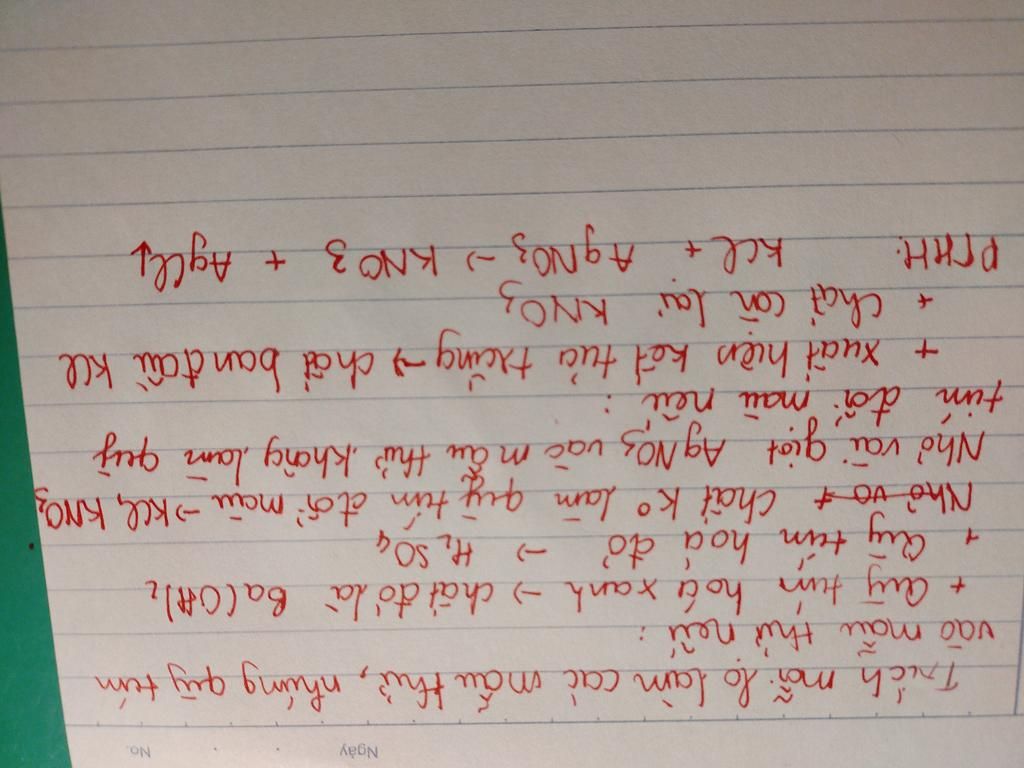 Ngày No.
Trích mỗi lọ làm các mẫu thử, nhúng quỳ tím
vào mẫu thử nếu:
+ Quỳ tím hoá xanh → chất đó là Ba(OH)₂
+ Quỳ tím hoá đỏ → H₂SO₄
Nhỏ và + chất k° làm quỳ tím đổi màu → KCl, KNO₃
Nhỏ vài giọt AgNO₃ vào mẫu thử không làm quỳ
tím đổi màu nếu:
+ xuất hiện kết tủa trắng → chất ban đầu KCl
+ chất còn lại KNO₃
PTHH: KCl + AgNO₃ → KNO₃ + AgCl↓